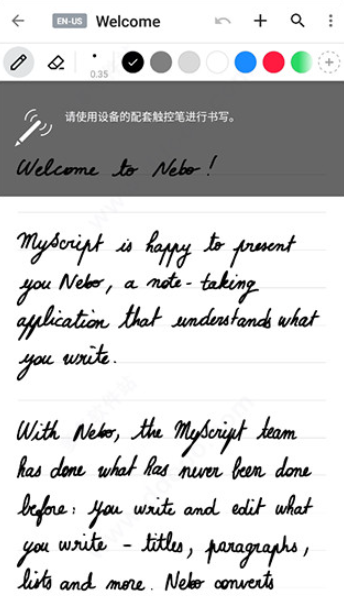 EN-US Welcome
0.35
请使用设备的配套触控笔进行书写。
Welcome to Nebo!
MyScript is happy to present
you Nebo, a note-taking
application that understands what
you write.
With Nebo, the MyScript team
has done what has never been done
before: you write and edit what
you write - titles, paragraphs,
lists and more. Nebo converts